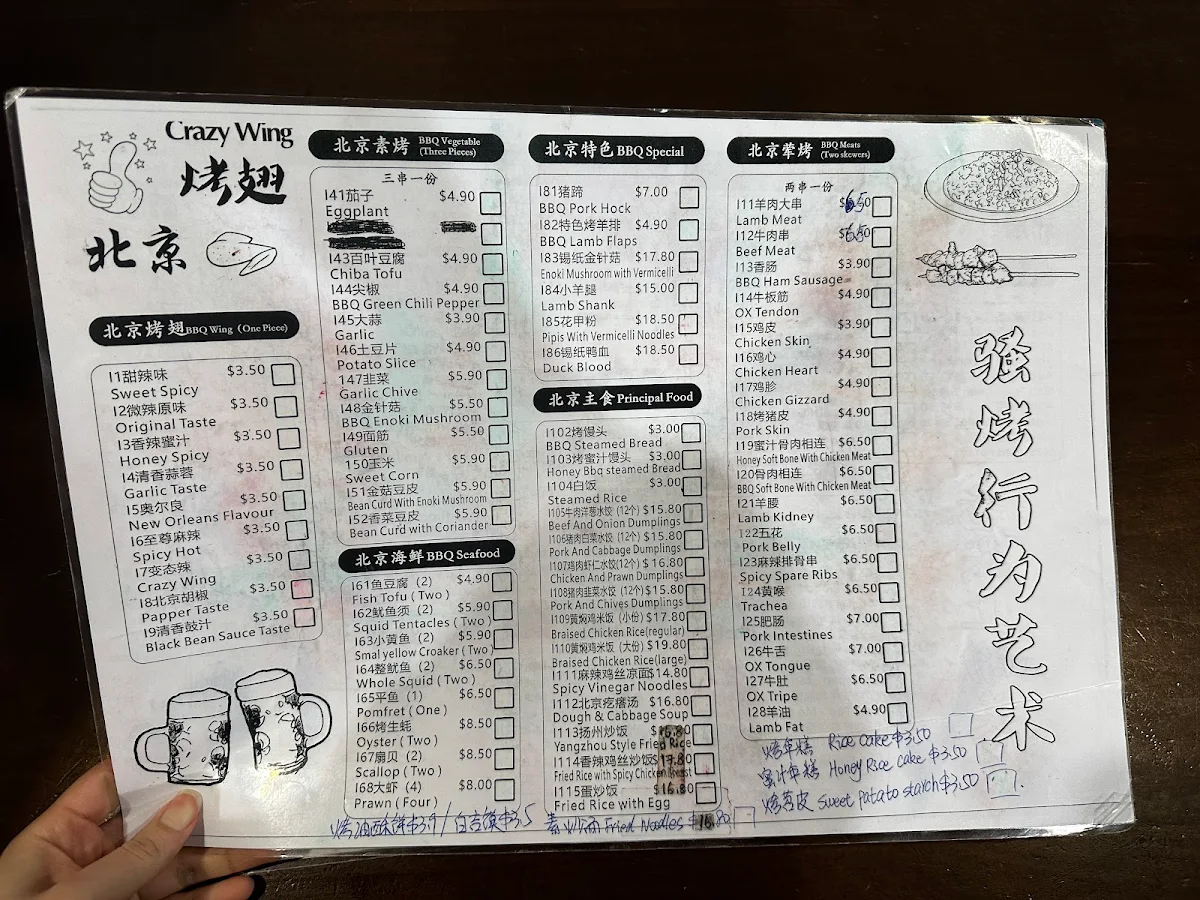 Crazy Wing
烤翅
北京
北京烤翅BBQ Wing (One Piece)
I1甜辣味 $3.50
Sweet Spicy
I2微辣原味 $3.50
Original Taste
I3香辣蜜汁 $3.50
Honey Spicy
I4清香蒜蓉 $3.50
Garlic Taste
I5奥尔良 $3.50
New Orleans Flavour
I6至尊麻辣 $3.50
Spicy Hot
I7变态辣 $3.50
Crazy Wing
I8北京胡椒 $3.50
Papper Taste
I9清香豉汁 $3.50
Black Bean Sauce Taste
北京素烤 BBQ Vegetable
(Three Pieces)
三串一份
I41茄子 $4.90
Eggplant
I43百叶豆腐 $4.90
Chiba Tofu
I44尖椒 $4.90
BBQ Green Chili Pepper
I45大蒜 $3.90
Garlic
I46土豆片 $4.90
Potato Slice
147韭菜 $5.90
Garlic Chive
I48金针菇 $5.50
BBQ Enoki Mushroom
I49面筋 $5.50
Gluten
150玉米 $5.90
Sweet Corn
I51金菇豆皮 $5.90
Bean Curd With Enoki Mushroom
I52香菜豆皮 $5.90
Bean Curd with Coriander
北京海鲜 BBQ Seafood
I61鱼豆腐 (2) $4.90
Fish Tofu ( Two )
I62鱿鱼须 (2) $5.90
Squid Tentacles ( Two )
I63小黄鱼 (2) $5.90
Smal yellow Croaker ( Two )
I64整鱿鱼 (2) $6.50
Whole Squid ( Two )
I65平鱼 (1) $6.50
Pomfret ( One )
I66烤生蚝 $8.50
Oyster ( Two )
I67扇贝 (2) $8.50
Scallop ( Two )
I68大虾 (4) $8.00
Prawn ( Four )
北京特色 BBQ Special
I81猪蹄 $7.00
BBQ Pork Hock
I82特色烤羊排 $4.90
BBQ Lamb Flaps
I83锡纸金针菇 $17.80
Enoki Mushroom with Vermicelli
I84小羊腿 $15.00
Lamb Shank
I85花甲粉 $18.50
Pipis With Vermicelli Noodles
I86锡纸鸭血 $18.50
Duck Blood
北京主食 Principal Food
I102烤馒头 $3.00
BBQ Steamed Bread
I103烤蜜汁馒头 $3.00
Honey Bbq steamed Bread
I104白饭 $3.00
Steamed Rice
I105牛肉洋葱水饺 (12个) $15.80
Beef And Onion Dumplings
I106猪肉白菜水饺 (12个) $15.80
Pork And Cabbage Dumplings
I107鸡肉虾仁水饺(12个) $16.80
Chicken And Prawn Dumplings
I108猪肉韭菜水饺 (12个) $15.80
Pork And Chives Dumplings
I109黄焖鸡米饭 (小份) $17.80
Braised Chicken Rice(regular)
I110黄焖鸡米饭 (大份) $19.80
Braised Chicken Rice(large)
I111麻辣鸡丝凉面$14.80
Spicy Vinegar Noodles
I112北京疙瘩汤 $16.80
Dough & Cabbage Soup
I113扬州炒饭 $16.80
Yangzhou Style Fried Rice
I114香辣鸡丝炒饭$17.80
Fried Rice with Spicy Chicken Breast
I115蛋炒饭 $16.80
Fried Rice with Egg
北京荤烤 BBQ Meats
(Two skewers)
两串一份
I11羊肉大串
Lamb Meat
I12牛肉串
Beef Meat
I13香肠 $3.90
BBQ Ham Sausage
I14牛板筋 $4.90
OX Tendon
I15鸡皮 $3.90
Chicken Skin
I16鸡心 $4.90
Chicken Heart
I17鸡胗 $4.90
Chicken Gizzard
I18烤猪皮 $4.90
Pork Skin
I19蜜汁骨肉相连 $6.50
Honey Soft Bone With Chicken Meat
I20骨肉相连 $6.50
BBQ Soft Bone With Chicken Meat
I21羊腰 $6.50
Lamb Kidney
I22五花 $6.50
Pork Belly
I23麻辣排骨串 $6.50
Spicy Spare Ribs
I24黄喉 $6.50
Trachea
I25肥肠 $7.00
Pork Intestines
I26牛舌 $7.00
OX Tongue
I27牛肚 $6.50
OX Tripe
I28羊油 $4.90
Lamb Fat
骚烤行为艺术
烤年糕 Rice cake $3.50
蜜汁年糕 Honey Rice cake $3.50
烤苕皮 Sweet Patato starch $3.50
烤油酥饼$3.9 / 白吉馍$3.5
素炒面 Fried Noodles $16.80